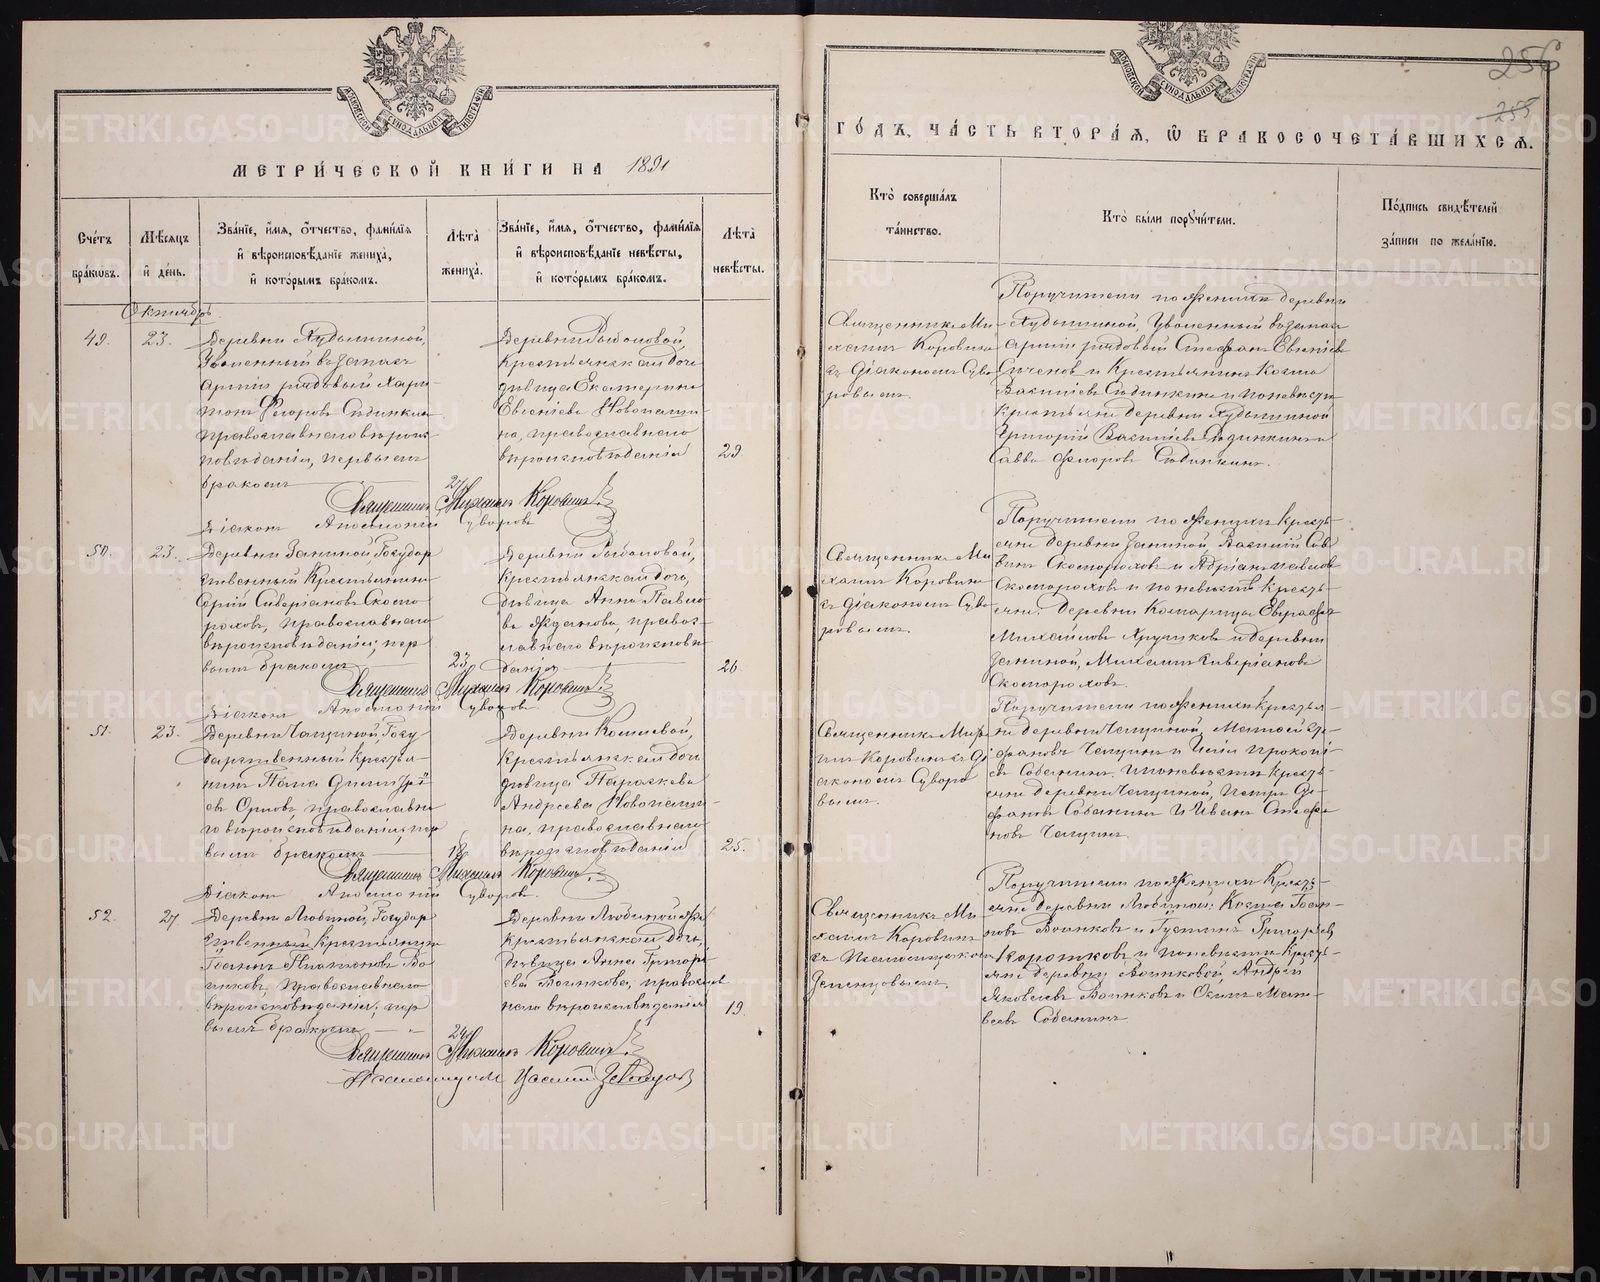 МЕТРИ́ЧЕСКОЙ КНИ́ГИ НА 1891
Сче́тъ бра́кωвъ.
Мѣ́сяцъ и҆ де́нь.
Зва́нїе, и҆́мя, ѻ҆́тчество, фами́лїя и҆ вѣроисповѣ́данїе жениха̀, и҆ кото́рымъ бра́комъ.
Лѣта̀ жениха̀.
Зва́нїе, и҆́мя, ѻ҆́тчество, фами́лїя и҆ вѣроисповѣ́данїе невѣ́сты, и҆ кото́рымъ бра́комъ.
Лѣта̀ невѣ́сты.
Октябрь
49.
23.
Деревни Худышиной,
Уволенный в запас
армии рядовый Хари-
тон Федоров Сединкин
православнаго вѣроис-
повѣданія, первымъ
бракомъ
Деревни Рыболовой,
Крестьянская дочь
дѣвица Екатерина
Евгеніева Новопаши-
на, православнаго
вѣроисповѣданія
29.
Священникъ Михаилъ Коровинъ
Діаконъ Аполлоній Суворовъ
50.
23.
Деревни Заниной, Государ
ственный Крестьянинъ
Сиверіановъ Скомо
роховъ, православнаго
вѣроисповѣданія; пер
вымъ бракомъ
23.
Деревни Рыболовой,
Крестьянская дочь,
дѣвица Анна Павло
ва Жданова, правос-
лавнаго вѣроисповѣ
данія
26.
Священникъ Михаилъ Коровинъ
Діаконъ Аполлоній Суворовъ
51.
23.
Деревни Чащиной, Госу
дарственный Крестья-
нинъ Дмитрі
евъ Орловъ, православна
го вѣроисповѣданія; пер
вымъ бракомъ
18.
Деревни Кошаевой,
Крестьянская дочь
дѣвица Параскева
Андреева Новопаши-
на, православнаго
вѣроисповѣданія
25.
Священникъ Михаилъ Коровинъ
Діаконъ Аполлоній Суворовъ
52.
27.
Деревни Любиной, Государ
ственный крестьянинъ
Іоаннъ Платоновъ Во
инковъ, Православнаго
вѣроисповѣданія; пер
вымъ бракомъ
24.
Деревни Любиной же,
крестьянская дочь,
дѣвица Анна Григорь
ева Воинкова, православ
наго вѣроисповѣданія
19.
Священникъ Михаилъ Коровинъ
256
255
ГО́ДЪ, ЧА́СТЬ ВТОРА́Я, Ѡ҆ БРАКОСОЧЕТА́ВШИХСЯ.
Кто̀ соверша́лъ та́инство.
Кто̀ бы́ли порꙋчи́тели.
По́дпись свидѣ́телей за́писи по жела́нїю.
Священникъ Ми-
хаилъ Коровинъ
съ діакономъ Суво
ровымъ.
Поручители по женихѣ деревни
Худышиной, Уволенный в запас
арміи рядовый Стефанъ Евгеніев
Сиченовъ и Крестьянинъ Козма
Васильевъ Сединкинъ и по невѣстѣ
крестьяне деревни Худышиной
Григорій Васильевъ Сединкинъ и
Савва Федоровъ Сединкинъ.
Священникъ Ми
хаилъ Коровинъ
съ діакономъ Суво
ровымъ.
Поручители по женихѣ Кресть-
яне деревни Заниной, Василій Сав
винъ Скомороховъ и Адріанъ Павловъ
Скомороховъ и по невѣстѣ Кресть-
яне: деревни Комарица Евграфъ
Михайловъ Хрулковъ и деревни
Заниной, Михаилъ Сиверіановъ
Скомороховъ.
Священникъ Миха
илъ Коровинъ съ Ді
акономъ Суворо
вымъ.
Поручители по женихѣ Крестья-
не деревни Чащиной, Матвей Сте-
фановъ Чащинъ и Илія Прокопі-
евъ Собенинъ. И по невѣстѣ Кресть-
яне деревни Чащиной, Петръ Сте-
фановъ Собенинъ и Иванъ Стефа
новъ Чащинъ.
Священникъ Ми
хаилъ Коровинъ
съ Псаломщикомъ
Зеленцовымъ.
Поручители по женихѣ Кресть-
яне деревни Любиной: Козма Іоан-
новъ Воинковъ и Іустинъ Григорьев
Коротковъ, и по невѣстѣ Кресть-
яне деревни Воинковой, Андрей
Яковлевъ Воинковъ и Осипъ Мат-
веевъ Собенинъ
METRIKI.GASO-URAL.RU